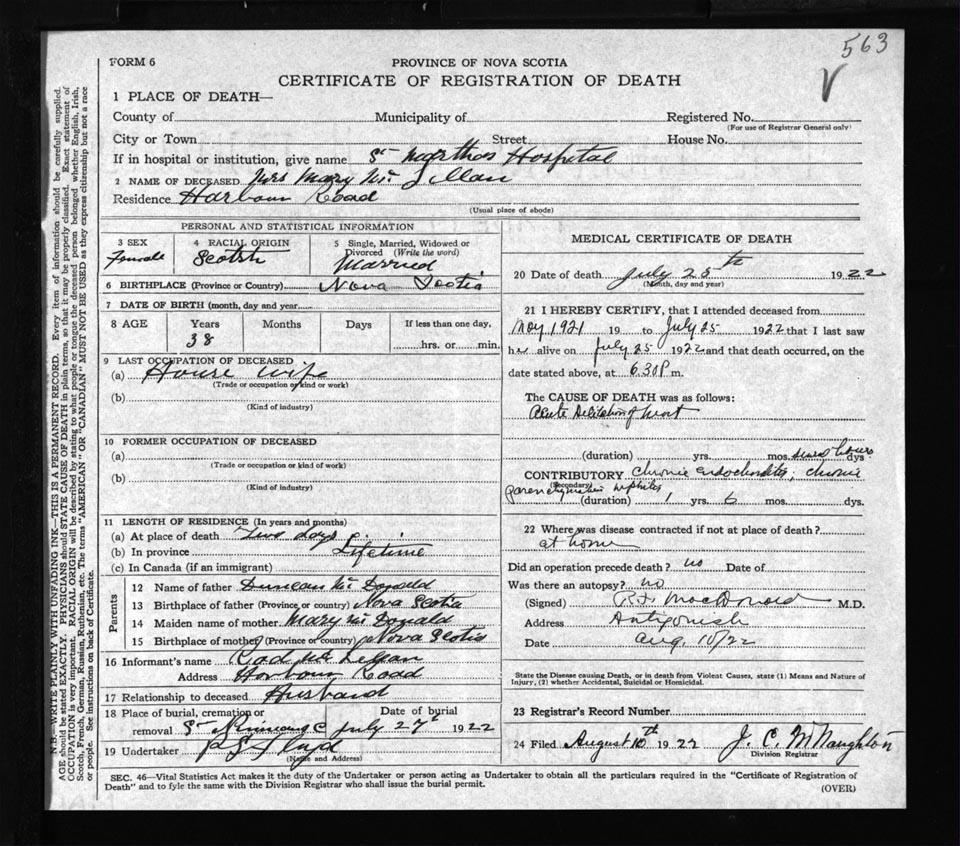 563
V
FORM 6
PROVINCE OF NOVA SCOTIA
CERTIFICATE OF REGISTRATION OF DEATH
1 PLACE OF DEATH—
County of Municipality of Registered No.
(For use of Registrar General only)
City or Town Street House No.
If in hospital or institution, give name St Marthas Hospital
2 NAME OF DECEASED Mrs Mary Mc Lellan
Residence Harbour Road
(Usual place of abode)
PERSONAL AND STATISTICAL INFORMATION
3 SEX
Female
4 RACIAL ORIGIN
Scotch
5 Single, Married, Widowed or
Divorced (Write the word)
Married
6 BIRTHPLACE (Province or Country) Nova Scotia
7 DATE OF BIRTH (month, day and year)
8 AGE Years Months Days If less than one day,
38 hrs. or min.
9 LAST OCCUPATION OF DECEASED
(a) House wife
(Trade or occupation or kind or work)
(b)
(Kind of industry)
10 FORMER OCCUPATION OF DECEASED
(a)
(Trade or occupation or kind of work)
(b)
(Kind of industry)
11 LENGTH OF RESIDENCE (In years and months)
(a) At place of death Two days
(b) In province Lifetime
(c) In Canada (if an immigrant)
Parents
12 Name of father Duncan Mc Donald
13 Birthplace of father (Province or country) Nova Scotia
14 Maiden name of mother Mary Mc Donald
15 Birthplace of mother (Province or country) Nova Scotia
16 Informant's name Rod Mc Lellan
Address Harbour Road
17 Relationship to deceased Husband
18 Place of burial, cremation or Date of burial
removal St July 27th 1922
19 Undertaker
(Name and Address)
MEDICAL CERTIFICATE OF DEATH
20 Date of death July 25th 1922
(Month, day and year)
21 I HEREBY CERTIFY, that I attended deceased from
Nov 1921 19 to July 25 1922 that I last saw
her alive on July 25 1922 and that death occurred, on the
date stated above, at 6.30 P m.
The CAUSE OF DEATH was as follows:
Acute Dilitation of heart
(duration) yrs. mos. hours dys.
CONTRIBUTORY Chronic Endocarditis, chronic
(Secondary)
parenchymatous nephritis
(duration) 1 yrs. 6 mos. dys.
22 Where was disease contracted if not at place of death?
at home
Did an operation precede death? no Date of
Was there an autopsy? no
(Signed) R.F. MacDonald M.D.
Address Antigonish
Date Aug. 10/22
State the Disease causing Death, or in death from Violent Causes, state (1) Means and Nature of
Injury, (2) whether Accidental, Suicidal or Homicidal.
23 Registrar's Record Number
24 Filed August 10th 1922 J. C. McNaughton
Division Registrar
SEC. 46—Vital Statistics Act makes it the duty of the Undertaker or person acting as Undertaker to obtain all the particulars required in the "Certificate of Registration of
Death" and to fyle the same with the Division Registrar who shall issue the burial permit.
(OVER)
N.B.—WRITE PLAINLY WITH UNFADING INK—THIS IS A PERMANENT RECORD. Every item of information should be carefully supplied.
AGE should be stated EXACTLY. PHYSICIANS should STATE CAUSE OF DEATH in plain terms, so that it may be properly classified. Exact statement of
OCCUPATION is very important. RACIAL ORIGIN will be described by stating to what people or tongue the deceased person belonged whether English, Irish,
Scotch, French, German, Russian, Ruthenian, etc. The terms "AMERICAN" OR "CANADIAN" MUST NOT BE USED as they express citizenship but not a race
or people. See instructions on back of Certificate.